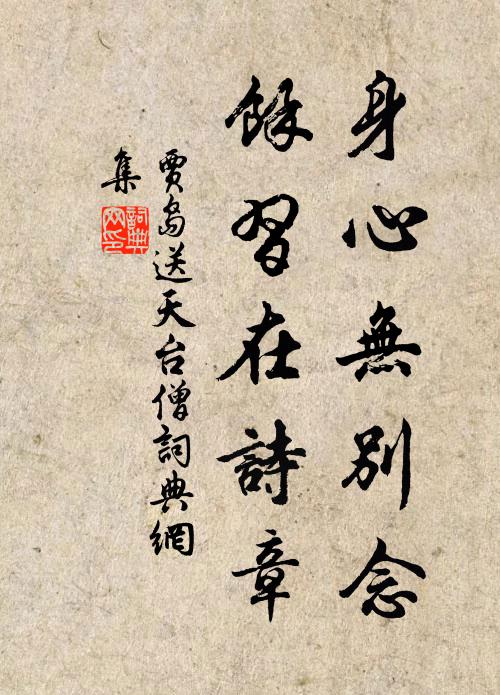 身心無別念
餘習在詩章
賈島送天台僧詞典網
集
詞典網印